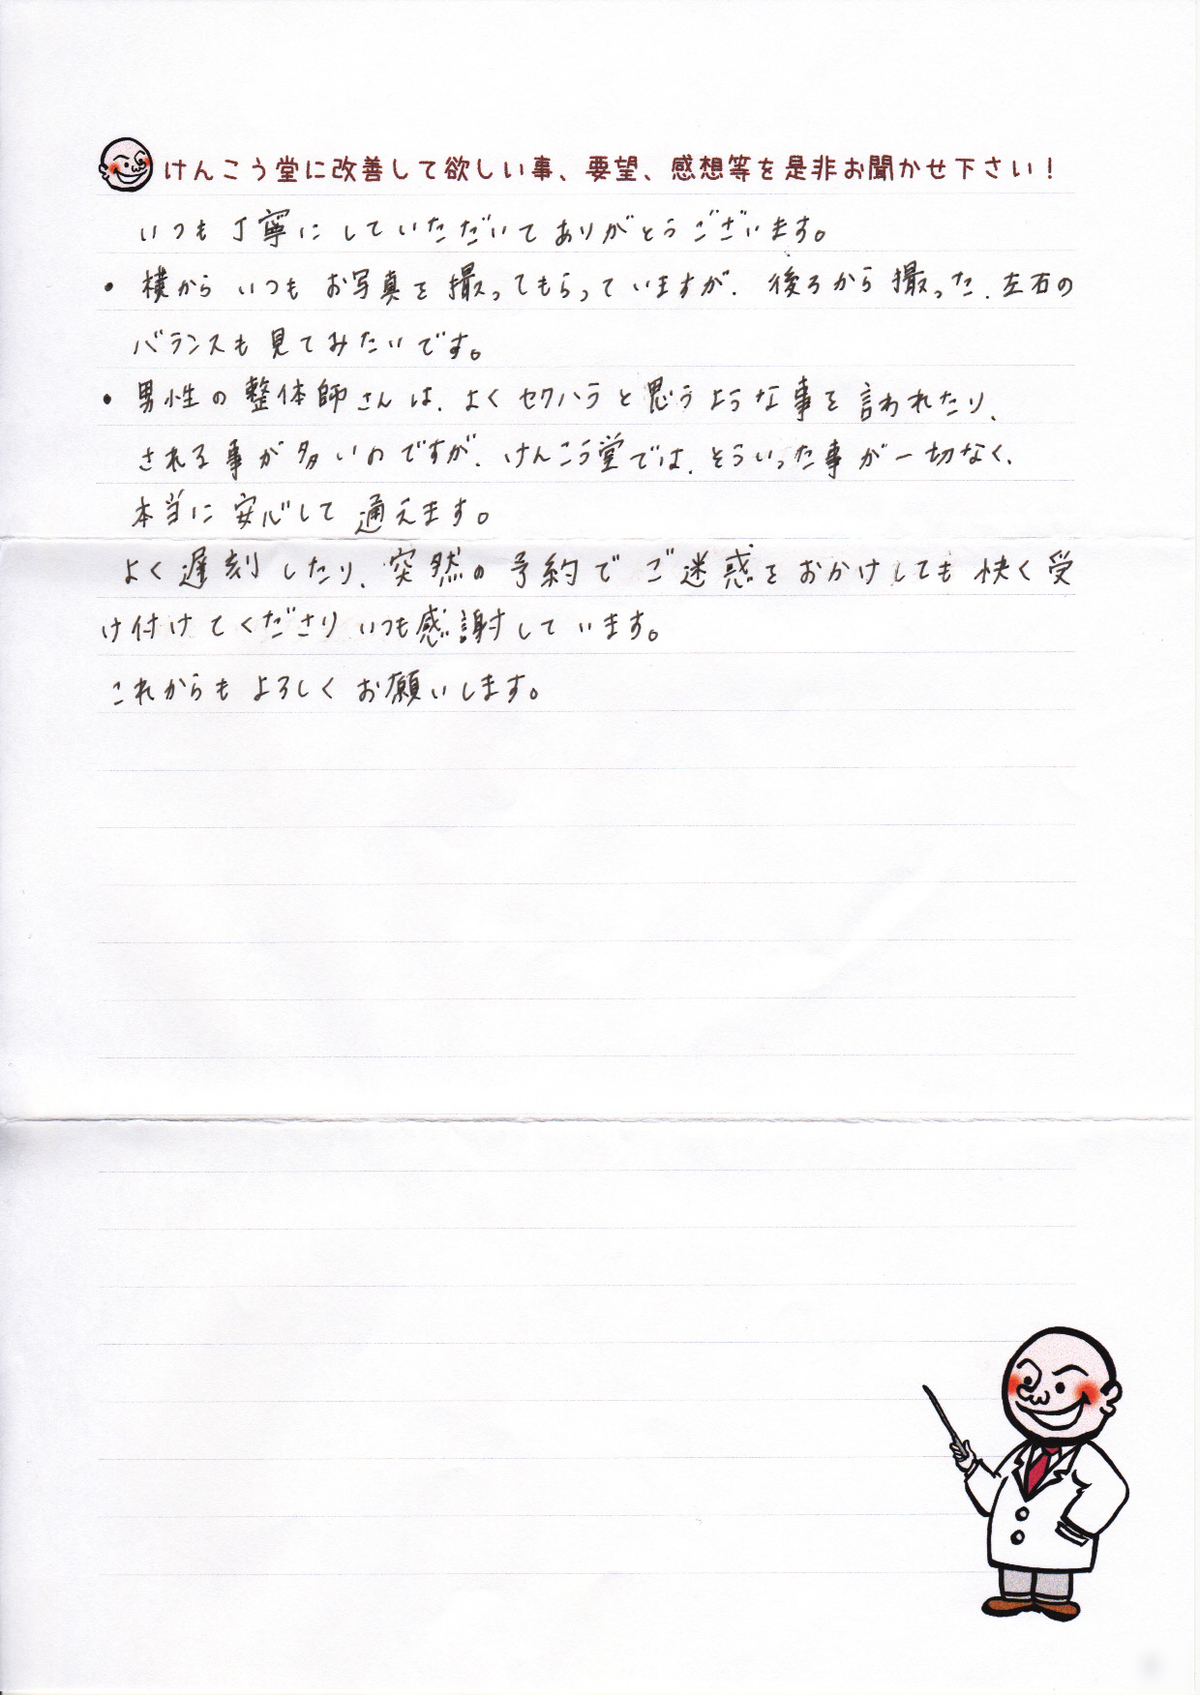 けんこう堂に改善して欲しい事、要望、感想等を是非お聞かせ下さい！
いつも丁寧にしていただいてありがとうございます。
・横からいつもお写真を撮ってもらっていますが、後ろから撮った、左右の
バランスも見てみたいです。
・男性の整体師さんは、よくセクハラと思うような事を言われたり、
される事が多いのですが、けんこう堂では、そういった事が一切なく、
本当に安心して通えます。
よく遅刻したり、突然の予約でご迷惑をおかけしても快く受
け付けてくださりいつも感謝しています。
これからもよろしくお願いします。